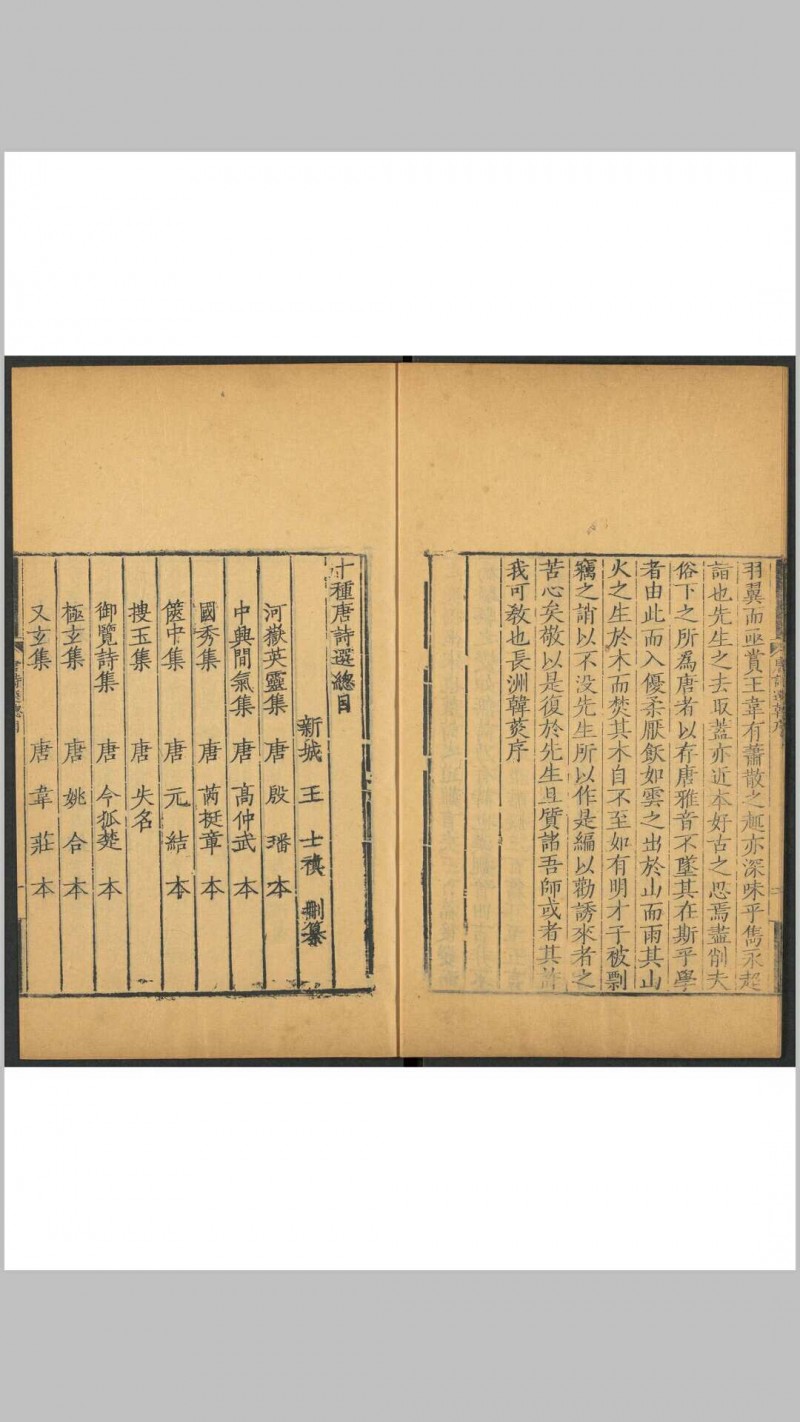 羽翼而亟賞王韋有蕭散之趣亦深味乎雋永超
詣也先生之去取蓋亦近本好古之思焉盡削夫
俗下之所為唐者以存唐雅音不墜其在斯乎學
者由此而入優柔厭飫如雲之出於山而雨其山
火之生於木而焚其木自不至如有明才子被剽
竊之誚以不没先生所以作是編以勸誘來者之
苦心矣敬以是復於先生且質諸吾師或者其許
我可敎也長洲韓菼序
十種唐詩選總目
新城 王 士禛 刪纂
河嶽英靈集 唐 殷 璠 本
中興間氣集 唐 高仲武 本
國秀集 唐 芮挺章 本
篋中集 唐 元 結 本
搜玉集 唐 失名
御覽詩集 唐 令狐楚 本
極玄集 唐 姚 合 本
又玄集 唐 韋 莊 本